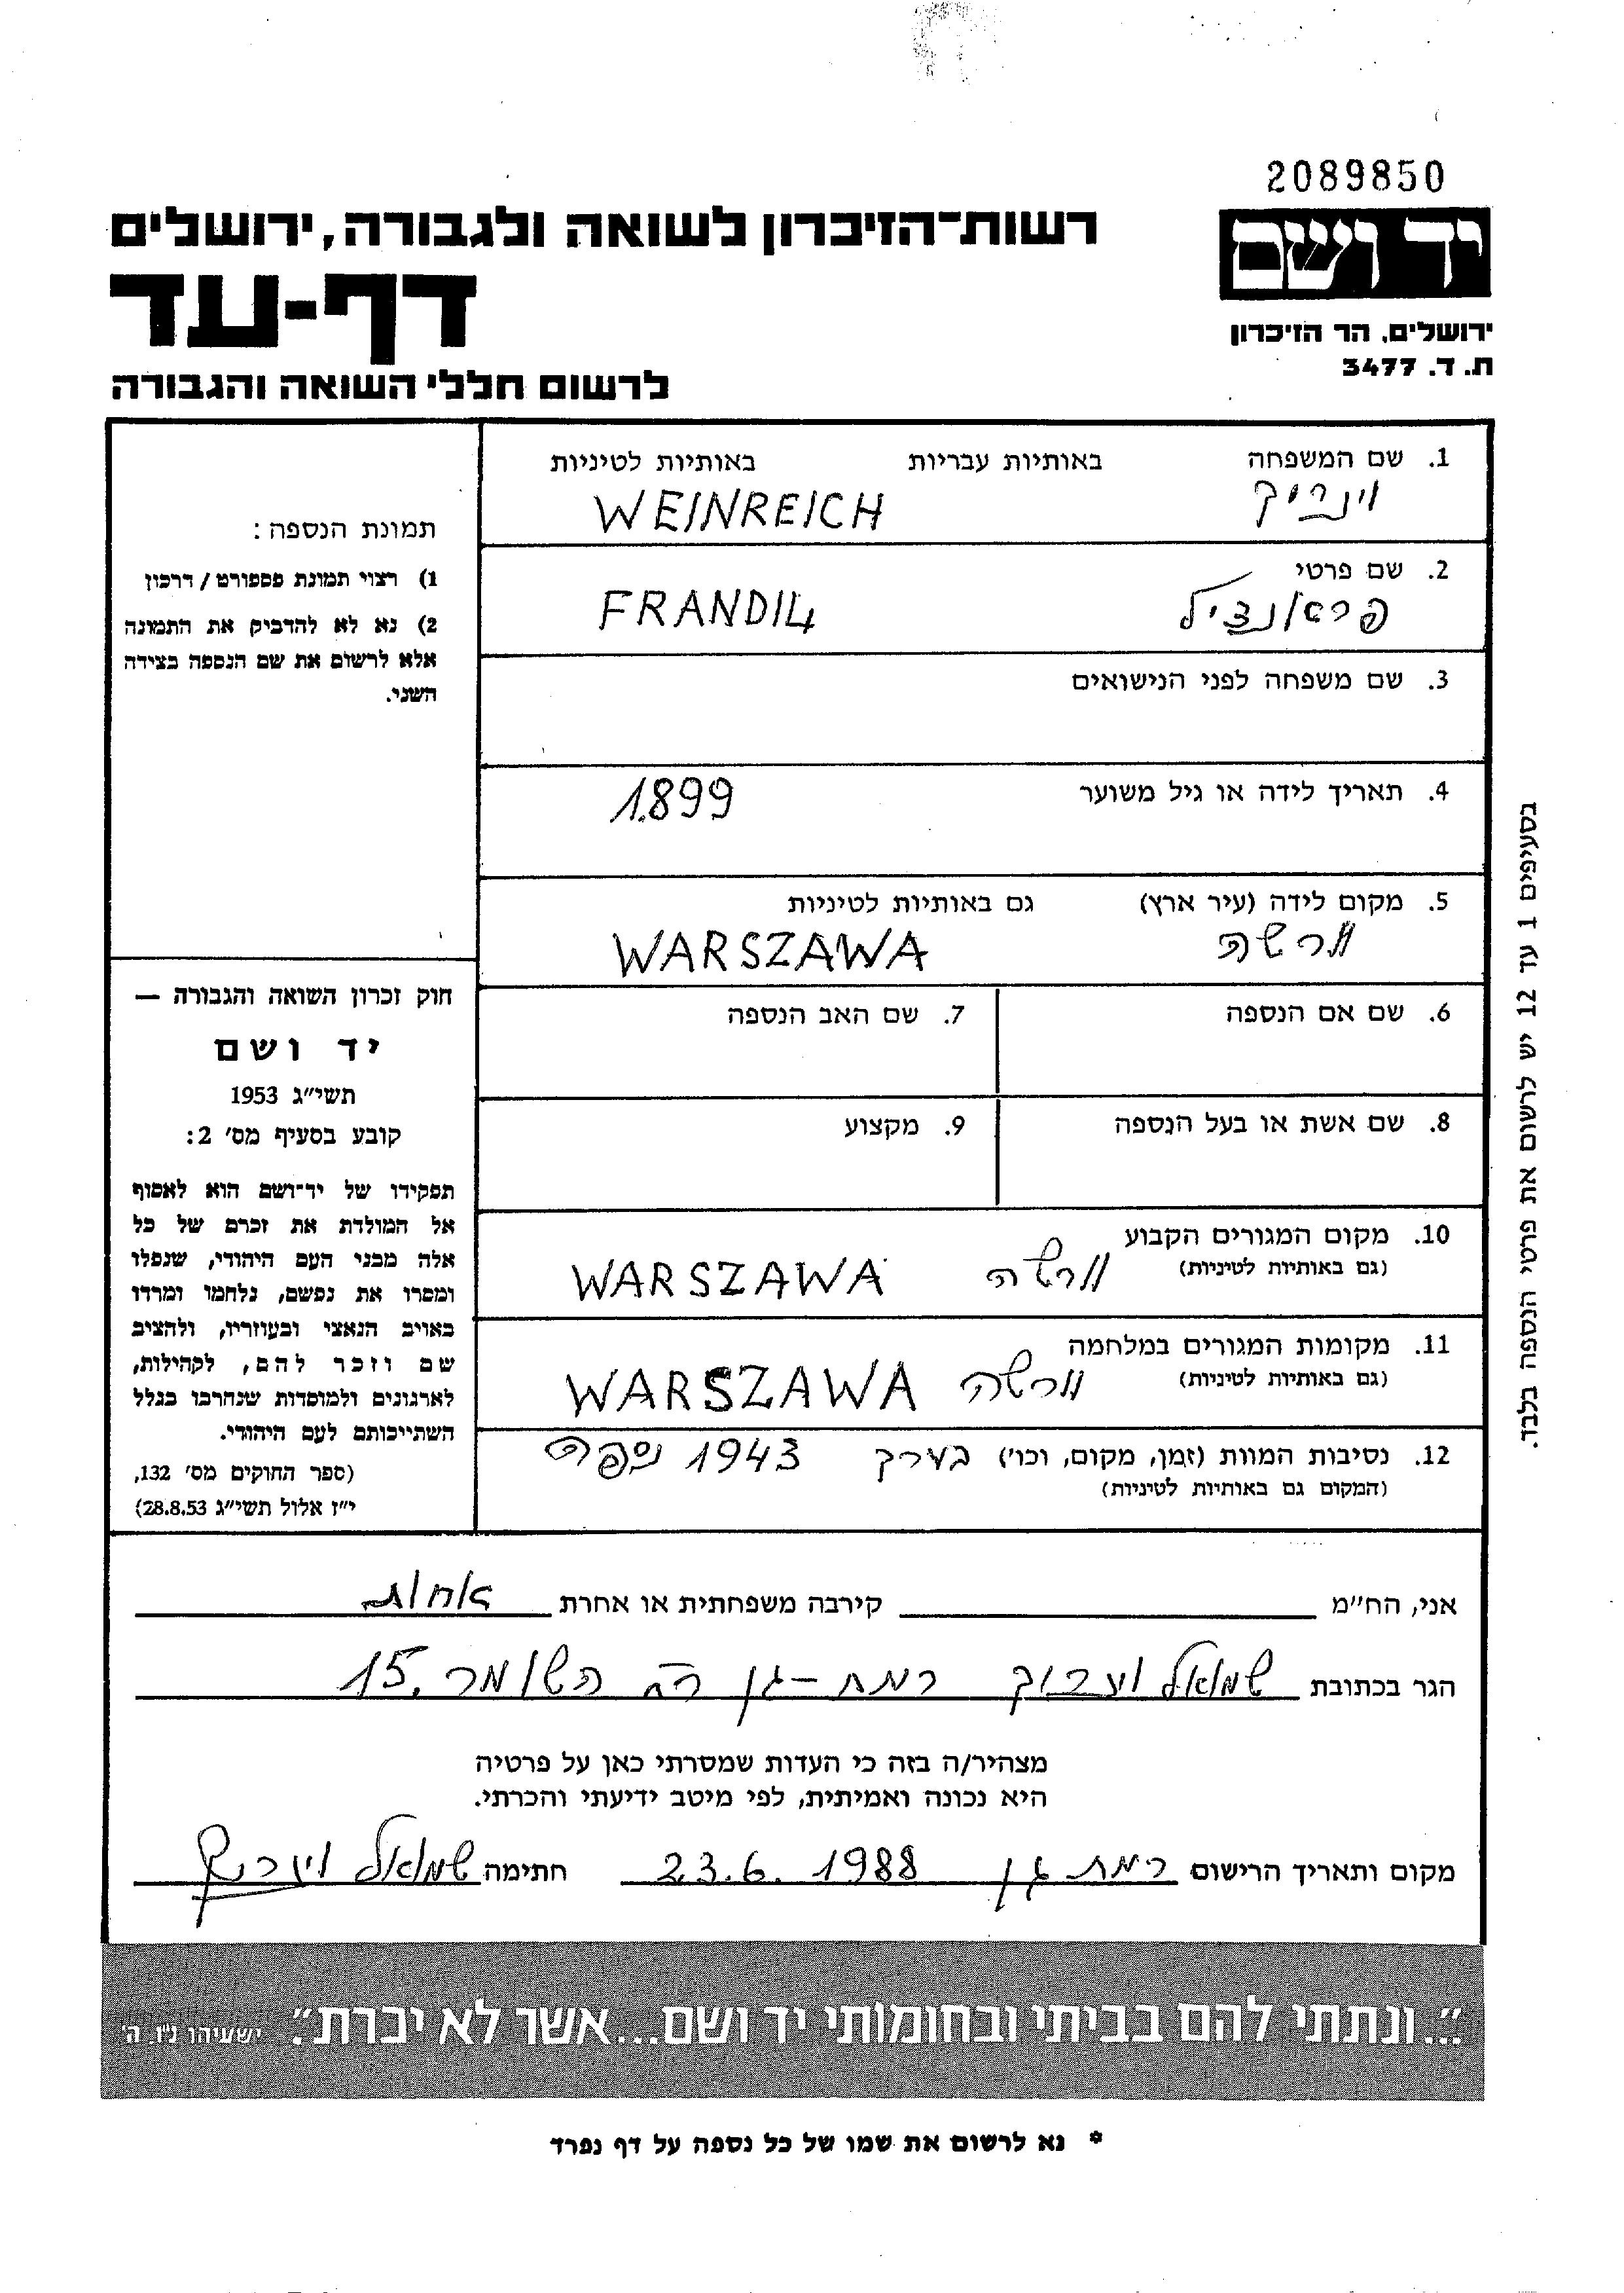 2089850
יד ושם
ירושלים, הר הזיכרון
ת. ד. 3477
רשות-הזיכרון לשואה ולגבורה, ירושלים
דף-עד
לרשום חללי השואה והגבורה
1. שם המשפחה באותיות עבריות באותיות לטיניות
וינריך WEINREICH
2. שם פרטי
פראנדיל FRANDIL
3. שם משפחה לפני הנישואים
4. תאריך לידה או גיל משוער
1899
5. מקום לידה (עיר ארץ) גם באותיות לטיניות
ורשה WARSZAWA
6. שם אם הנספה
7. שם האב הנספה
8. שם אשת או בעל הנספה
9. מקצוע
10. מקום המגורים הקבוע
(גם באותיות לטיניות) ורשה WARSZAWA
11. מקומות המגורים במלחמה
(גם באותיות לטיניות) ורשה WARSZAWA
12. נסיבות המוות (זמן, מקום, וכו') בערך 1943 ניספה
(המקום גם באותיות לטיניות)
תמונת הנספה:
1) רצוי תמונת פספורט / דרכון
2) נא לא להדביק את התמונה
אלא לרשום את שם הנספה בצידה
השני.
חוק זכרון השואה והגבורה —
יד ושם
תשי"ג 1953
קובע בסעיף מס' 2:
תפקידו של יד-ושם הוא לאסוף
אל המולדת את זכרם של כל
אלה מבני העם היהודי, שנפלו
ומסרו את נפשם, נלחמו ומרדו
באויב הנאצי ובעוזריו, ולהציב
שם וזכר להם, לקהילות,
לארגונים ולמוסדות שנחרבו בגלל
השתייכותם לעם היהודי.
(ספר החוקים מס' 132,
י"ז אלול תשי"ג 28.8.53)
בסעיפים 1 עד 12 יש לרשום את פרטי הנספה בלבד.
אני, הח"מ קירבה משפחתית או אחרת אחות
הגר בכתובת שמואל רמת-גן רח השומר 15.
מצהיר/ה בזה כי העדות שמסרתי כאן על פרטיה
היא נכונה ואמיתית, לפי מיטב ידיעתי והכרתי.
מקום ותאריך הרישום רמת גן 23.6.1988 חתימה שמואל
"...ונתתי להם בביתי ובחומותי יד ושם...אשר לא יכרת". ישעיהו נ"ו, ה'
* נא לרשום את שמו של כל נספה על דף נפרד